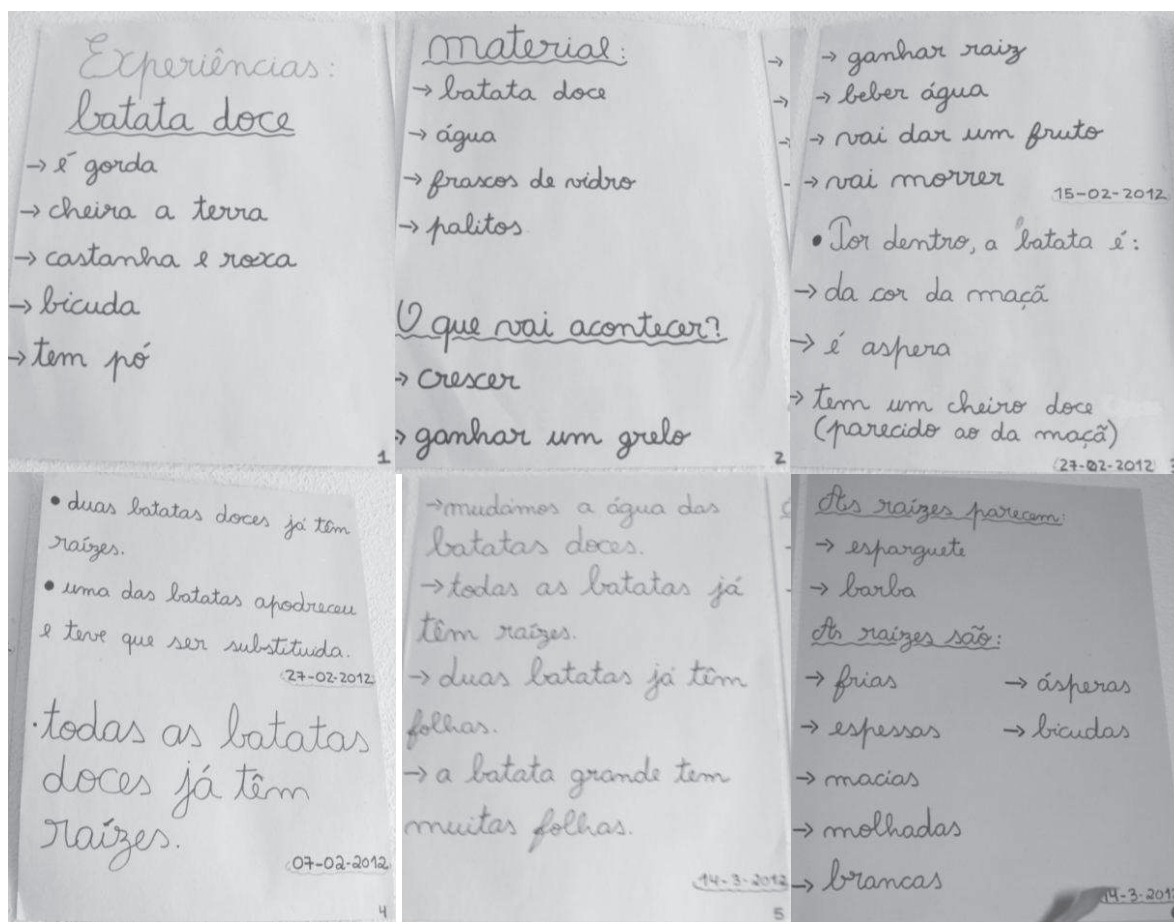 Experiências:
batata doce
→ é gorda
→ cheira a terra
→ castanha e roxa
→ bicuda
→ tem pó
1
material:
→ batata doce
→ água
→ frascos de vidro
→ palitos
O que vai acontecer?
→ crescer
→ ganhar um grelo
2
→ ganhar raiz
→ beber água
→ vai dar um fruto
→ vai morrer
15-02-2012
• Por dentro, a batata é:
→ da cor da maçã
→ é aspera
→ tem um cheiro doce
(parecido ao da maçã)
27-02-2012
3
• duas batatas doces já têm
raízes.
• uma das batatas apodreceu
e teve que ser substituida.
27-02-2012
·todas as batatas
doces já têm
raízes.
07-02-2012
4
→mudámos a água das
batatas doces.
→todas as batatas já
têm raízes.
→ duas batatas já têm
folhas.
→ a batata grande tem
muitas folhas.
14-3-2012
5
As raízes parecem:
→ esparguete
→ barba
As raízes são:
→ frias → ásperas
→ espessas → bicudas
→ macias
→ molhadas
→ brancas
14-3-201